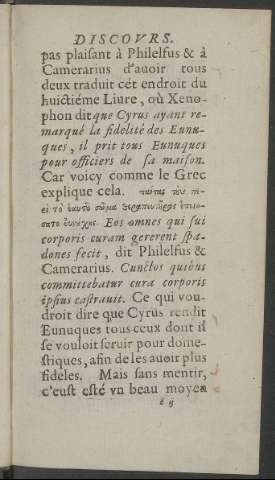 DISCOVRS.
pas plaisant à Philelfus & à
Camerarius d'auoir tous
deux traduit cét endroit du
huictiéme Liure, où Xeno-
phon dit que Cyrus ayant re-
marqué la fidelité des Eunu-
ques, il prit tous Eunuques
pour officiers de sa maison.
Car voicy comme le Grec
explique cela.
Eos omnes qui sui
corporis curam gererent spa-
dones fecit, dit Philelfus &
Camerarius. Cunctos quibus
committebatur cura corporis
ipsius castrauit. Ce qui vou-
droit dire que Cyrus rendit
Eunuques tous ceux dont il
se vouloit seruir pour dome-
stiques, afin de les auoir plus
fideles. Mais sans mentir,
c'eust esté vn beau moyen
é ij